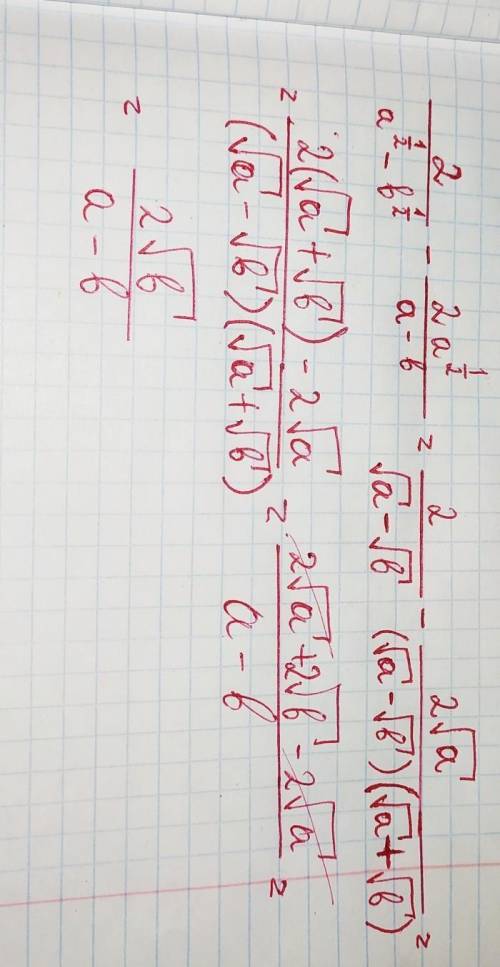 2/(a^(1/2) - b^(1/2)) - 2a^(1/2)/(a - b) = 2/(√a - √b) - 2√a/((√a - √b)(√a + √b)) =
= (2(√a + √b) - 2√a)/((√a - √b)(√a + √b)) = (2√a + 2√b - 2√a)/(a - b) =
= 2√b/(a - b)